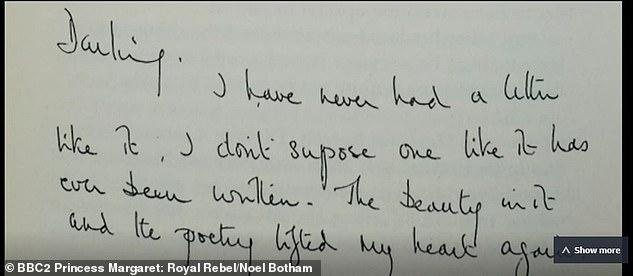 Darling.
I have never had a letter
like it, I don't supose one like it has
ever been written. The beauty in it
and the poetry lifted my heart again
Show more
© BBC2 Princess Margaret: Royal Rebel/Noel Botham